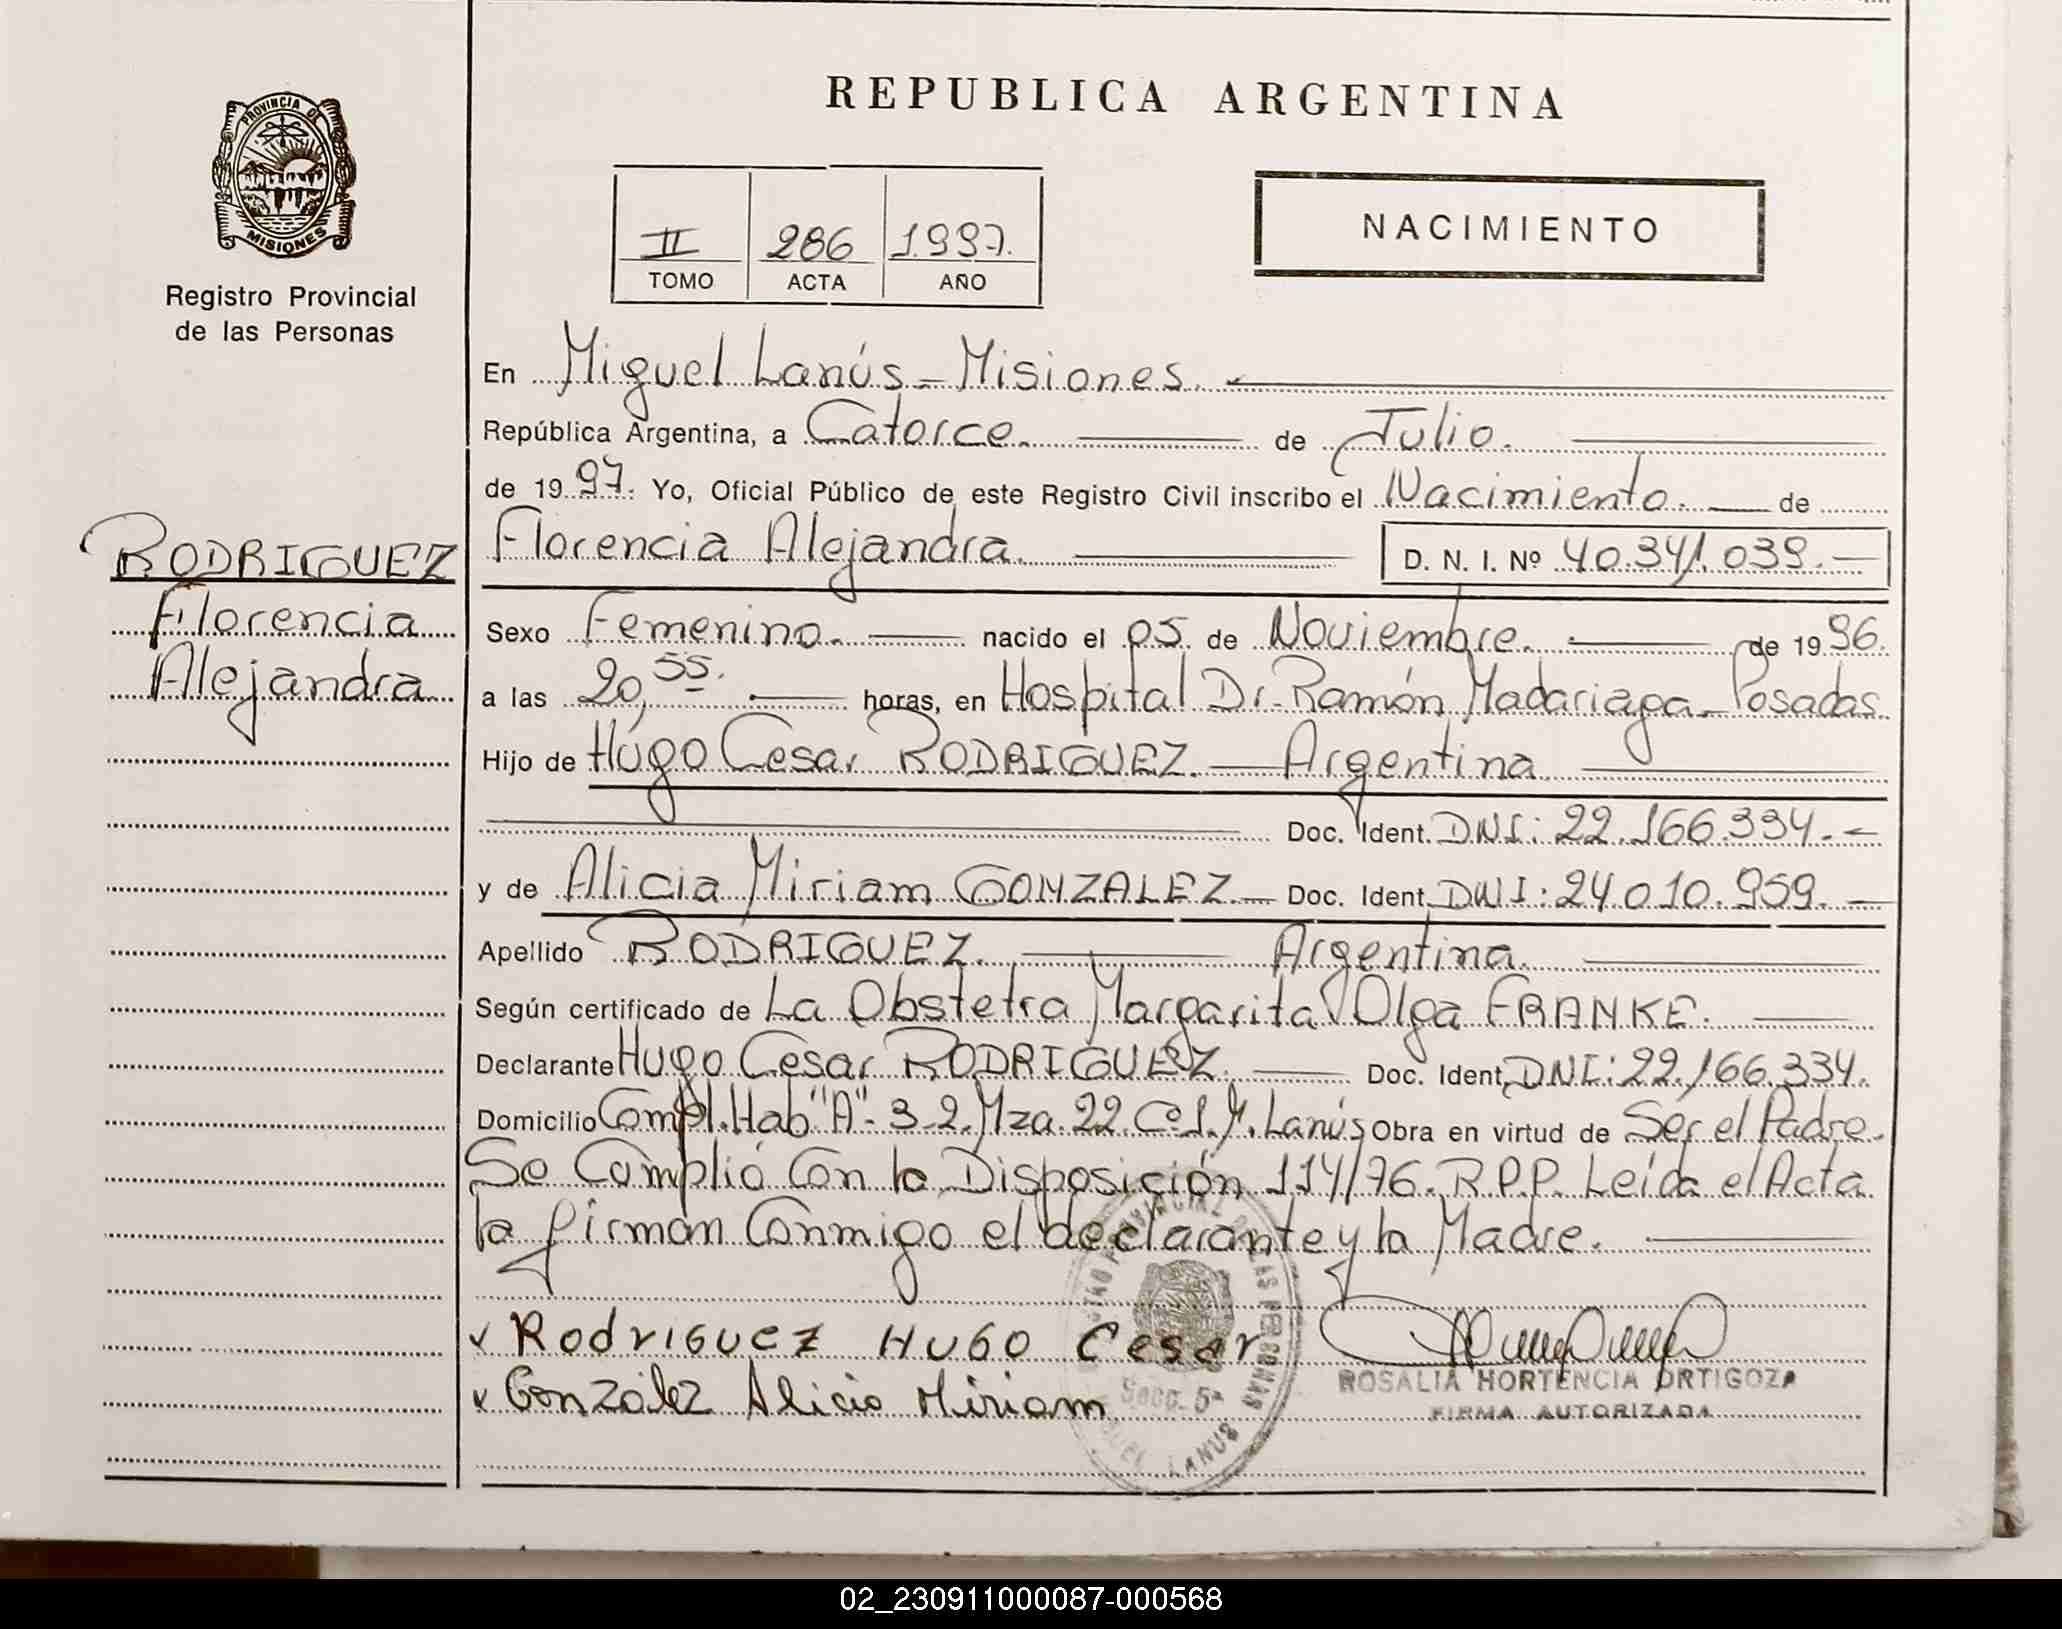 PROVINCIA DE
MISIONES
Registro Provincial
de las Personas
RODRIGUEZ
Florencia
Alejandra
REPUBLICA ARGENTINA
II 286 1997.
TOMO ACTA AÑO
NACIMIENTO
En Miguel Lanús - Misiones.
República Argentina, a Catorce. de Julio.
de 1997. Yo, Oficial Público de este Registro Civil inscribo el Nacimiento. de
Florencia Alejandra. D. N. I. Nº 40.341.039.-
Sexo Femenino. nacido el 05 de Noviembre. de 1996.
a las 20,55. horas, en Hospital Dr. Ramón Madariaga - Posadas.
Hijo de Hugo Cesar RODRIGUEZ. Argentina
Doc. Ident. DNI: 22.166.334.-
y de Alicia Miriam GONZALEZ.- Doc. Ident. DNI: 24.010.959.-
Apellido RODRIGUEZ. Argentina.
Según certificado de La Obstetra Margarita Olga FRANKE.
Declarante Hugo Cesar RODRIGUEZ. Doc. Ident. DNI: 22.166.334.
Domicilio Compl. Hab "A"- 3-2. Mza. 22. M. Lanús Obra en virtud de Ser el Padre.
Se Cumplió Con la Disposición 114/76. R.P.P. Leída el Acta
la firman Conmigo el declarante y la Madre.
Rodriguez Hugo Cesar
ROSALIA HORTENCIA ORTIGOZA
Gonzalez Alicia Miriam
FIRMA AUTORIZADA
Secc. 5ª
02_230911000087-000568